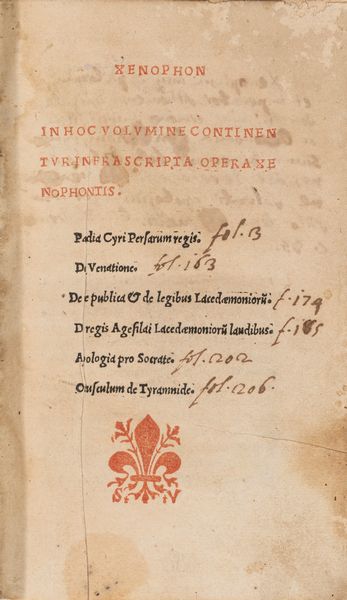 XENOPHON
IN HOC VOLVMINE CONTINEN
TVR INFRASCRIPTA OPERA XE
NOPHONTIS.
Pædia Cyri Persarum regis. fol. 13
D Venatione. fol. 163
De e publica & de legibus Lacedæmoniorū. f. 174
D regis Agesilai Lacedæmoniorū laudibus. f. 185
Apologia pro Socrate. fol. 202
Opusculum de Tyrannide. fol. 206.
S. V